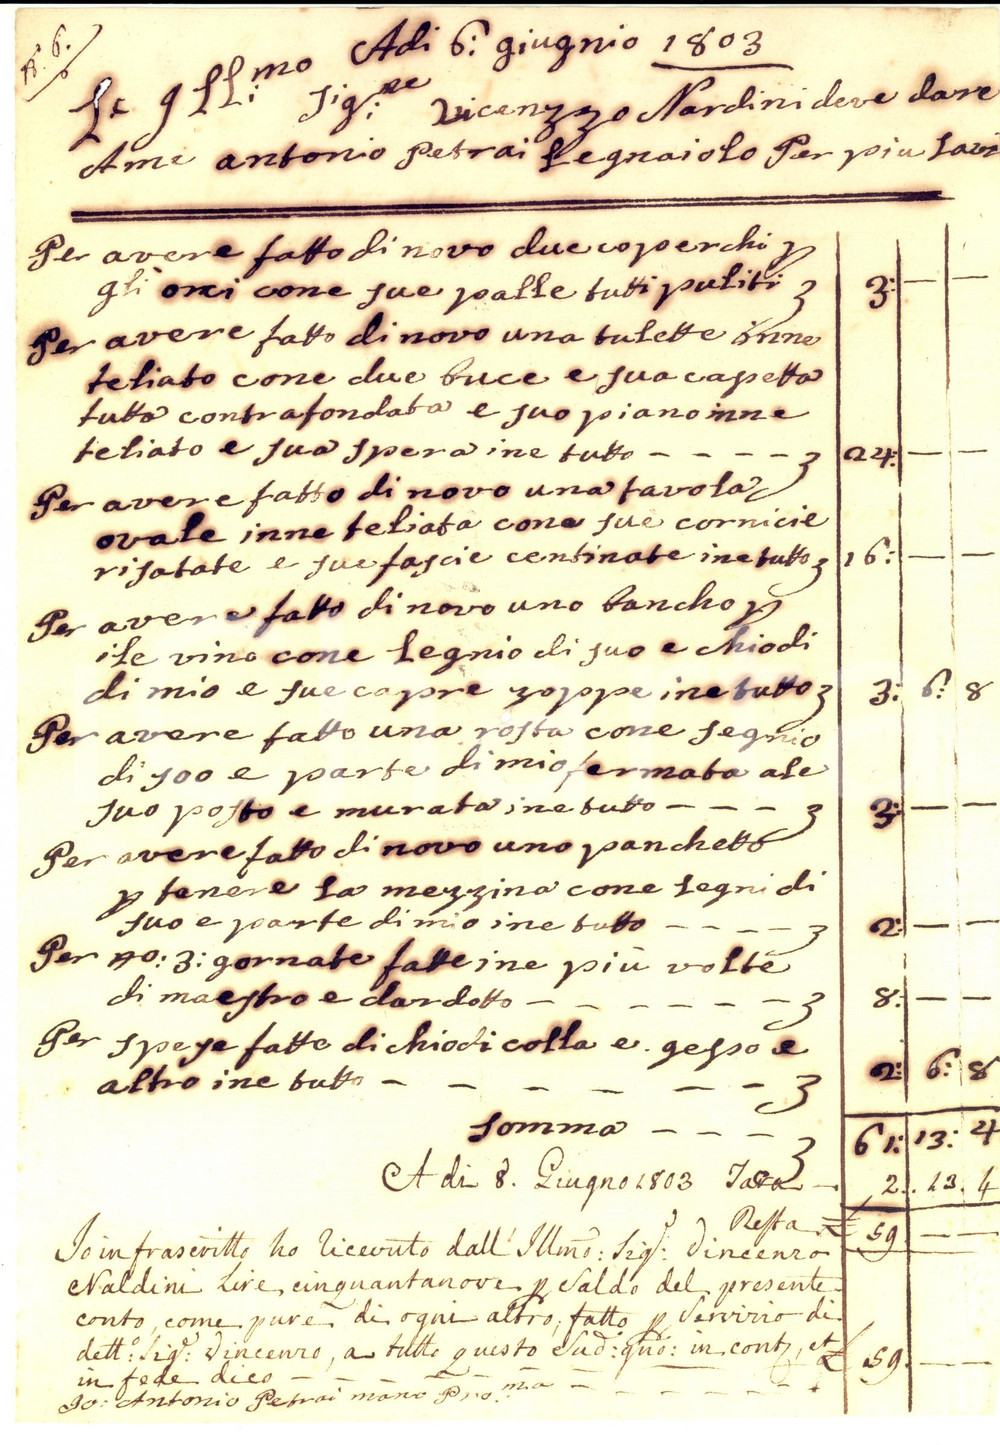 N: 6.
Adi 6: giugnio 1803
Le Ill:mo Sig:re Vicenzzo Nardini deve dare
A me antonio Petrai Legnaiolo Per piu lavo
Per avere fatto di novo due coperchi p
gli orci cone sue palle tutti puliti 3: — —
Per avere fatto di novo una tulette inne
teliato cone due buce e sua capetta
tutta contrafondata e suo piano inne
teliato e sua spera ine tutto - - - - 24: — —
Per avere fatto di novo una tavola
ovale inne teliata cone sue cornicie
risatate e sue fascie centinate ine tutto 16: — —
Per avere fatto di novo uno bancho p
ile vino cone legnio di suo e chiodi
di mio e sue capre zoppe ine tutto 3: 6: 8
Per avere fatto una rosta cone legnio
di soo e parte di mio fermata ale
suo posto e murata ine tutto - - - 3: — —
Per avere fatto di novo uno panchetto
p tenere la mezzina cone legni di
suo e parte di mio ine tutto - - - - 2: — —
Per no: 3: gornate fatte ine più volte
di maestro e dardotto - - - - - - - 8: — —
Per spese fatte di chiodi colla e gesso e
altro ine tutto - - - - - - 2: 6: 8
Somma - - - - 61: 13: 4
A di 8. Giugno 1803 Tara — 2.. 13. 4
Resta £ 59 — —
Io infrascritto ho ricevuto dall' Illmo: Sig.r: Vincenzo
Naldini Lire cinquantanove p Saldo del presente
conto, come pure di ogni altro, fatto p Servizio di
dett:o Sig.r: Vincenzo, a tutto questo Sud:o gno: in cont:i, et £ 59. — —
in fede dico - - - - - -
Io: Antonio Petrai mano Pro:ma - - - - - -